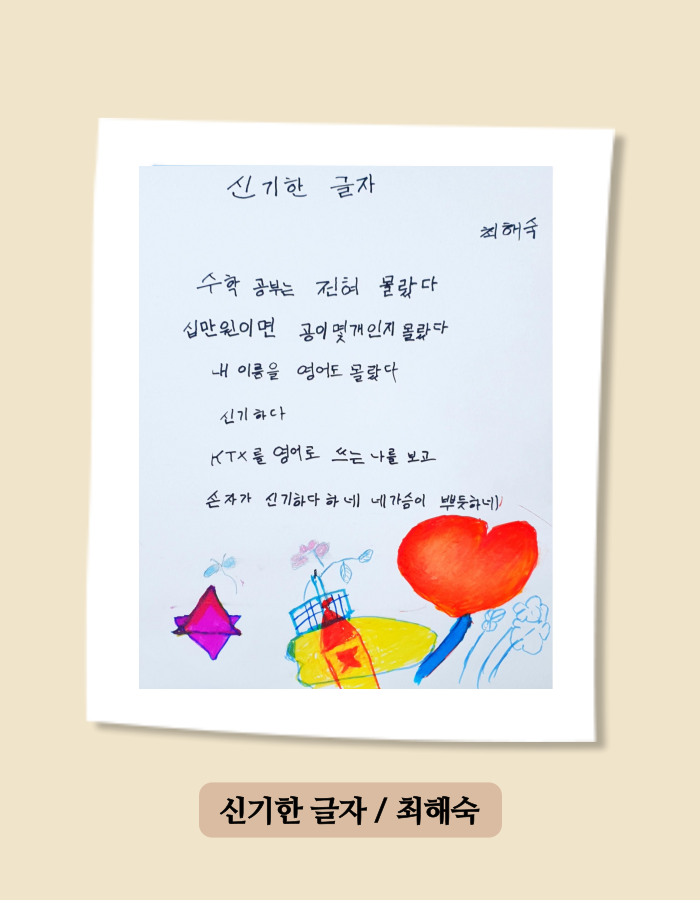 신기한 글자
최해숙
수학 공부는 전혀 몰랐다
십만원이면 공이 몇개인지 몰랐다
내 이름을 영어도 몰랐다
신기하다
KTX를 영어로 쓰는 나를 보고
손자가 신기하다 하네 네가슴이 뿌듯하네
신기한 글자 / 최해숙